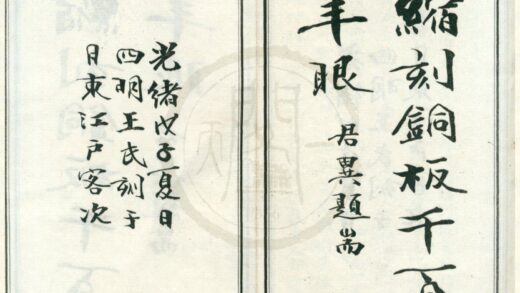 縮刻銅板千百
年眼
君異題耑
光緒戊子夏日
四明王氏刻于
日東江戶客次